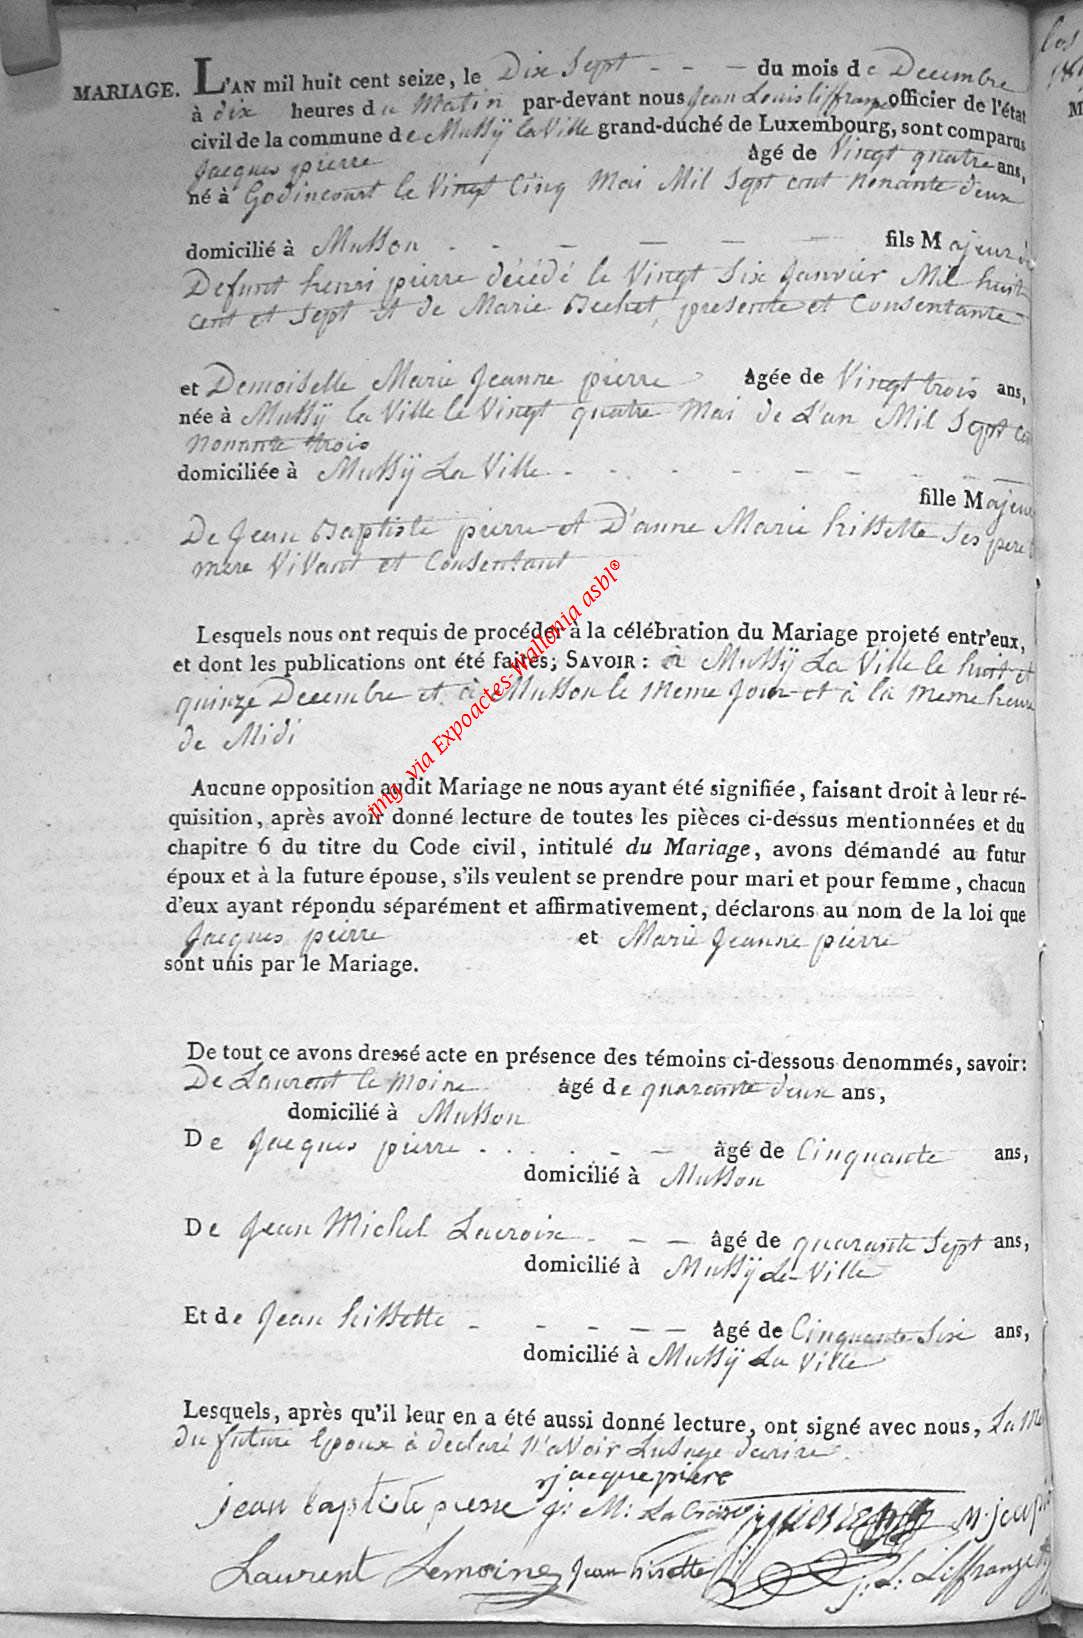 MARIAGE. L'AN mil huit cent seize, le Dix Sept - - - du mois de Decembre
à dix heures du Matin par-devant nous Jean Louis Liffrange officier de l'état
civil de la commune de Mussÿ la Ville grand-duché de Luxembourg, sont comparus
Jacques pierre âgé de Vingt quatre ans,
né à Godincourt le Vingt Cinq Mai Mil Sept cent Nonante deux
domicilié à Musson - - - - - - fils Majeur de
Defunt henri pierre décédé le Vingt Six Janvier Mil huit
cent et Sept et de Marie Bechet, presente et Consentante
et Demoiselle Marie Jeanne pierre âgée de Vingt trois ans,
née à Mussÿ la Ville le Vingt quatre Mai de L'an Mil Sept cen
Nonante trois
domiciliée à Mussÿ La Ville - - - - - - - - -
fille Majeur
De Jean Baptiste pierre et D'anne Marie hissette Ses pere
mere ViVant et Consentant
img via Expoactes-Wallonia asbl®
Lesquels nous ont requis de procéder à la célébration du Mariage projeté entr'eux,
et dont les publications ont été faites; SAVOIR : à Mussÿ La Ville le huit et
quinze Decembre et à Musson le meme Jour et à la meme heure
de Midi
Aucune opposition audit Mariage ne nous ayant été signifiée, faisant droit à leur ré-
quisition, après avoir donné lecture de toutes les pièces ci-dessus mentionnées et du
chapitre 6 du titre du Code civil, intitulé du Mariage, avons démandé au futur
époux et à la future épouse, s'ils veulent se prendre pour mari et pour femme, chacun
d'eux ayant répondu séparément et affirmativement, déclarons au nom de la loi que
Jacques pierre et Marie Jeanne pierre
sont unis par le Mariage.
De tout ce avons dressé acte en présence des témoins ci-dessous denommés, savoir:
De Laurent le moine âgé de quarante deux ans,
domicilié à Musson
De Jacques pierre - - - - - - âgé de Cinquante ans,
domicilié à Musson
De Jean Michel Lacroix - - - âgé de quarante Sept ans,
domicilié à Mussÿ La Ville
Et de Jean hissette - - - - - âgé de Cinquante Six ans,
domicilié à Mussÿ La Ville
Lesquels, après qu'il leur en a été aussi donné lecture, ont signé avec nous, La me
du future Epoux à declaré N'aVoir Lusage decrire.
jacque piere
jean baptiste pierre J: M: La Croix
Laurent Lemoine Jean hisette J: L: Liffrange